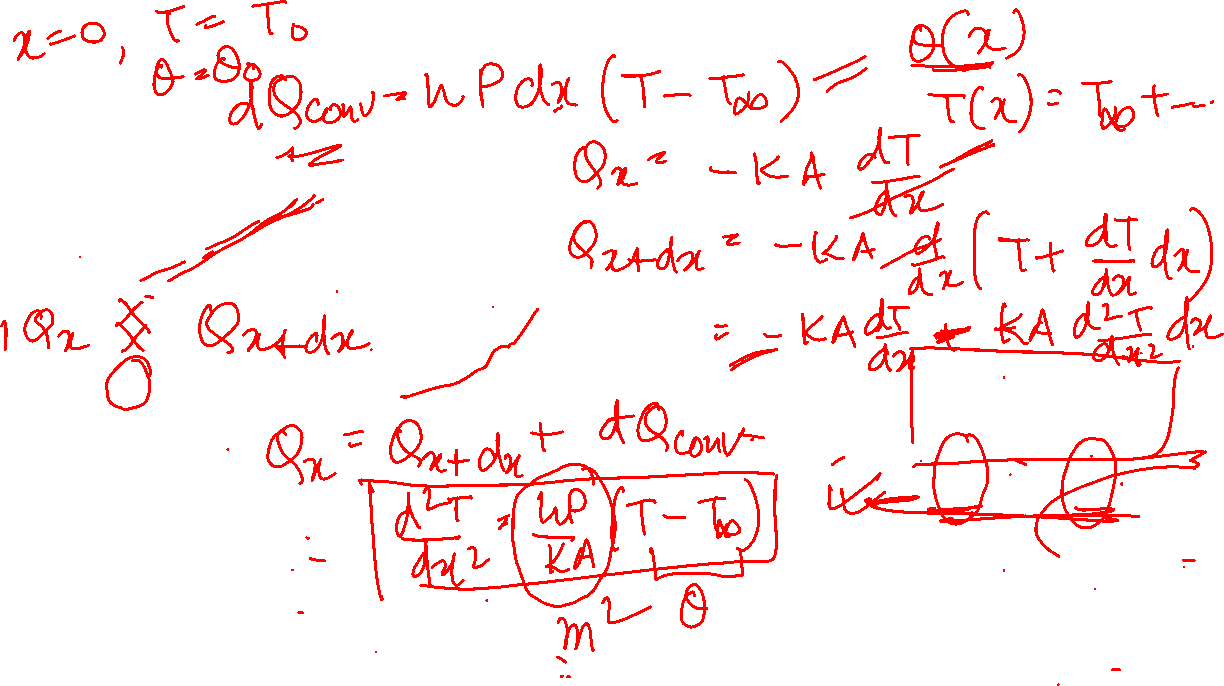 x=0, T = T₀
θ = θ₀
dQconv = hPdx (T − T∞) = θ(x)
T(x) = T∞ + ....
Qx = −KA dT/dx
Qx+dx = −KA d/dx (T + dT/dx dx)
Qx Qx+dx
= −KA dT/dx − KA d²T/dx² dx
Qx = Qx+dx + dQconv
d²T/dx² = hP/KA (T − T∞)
m² θ